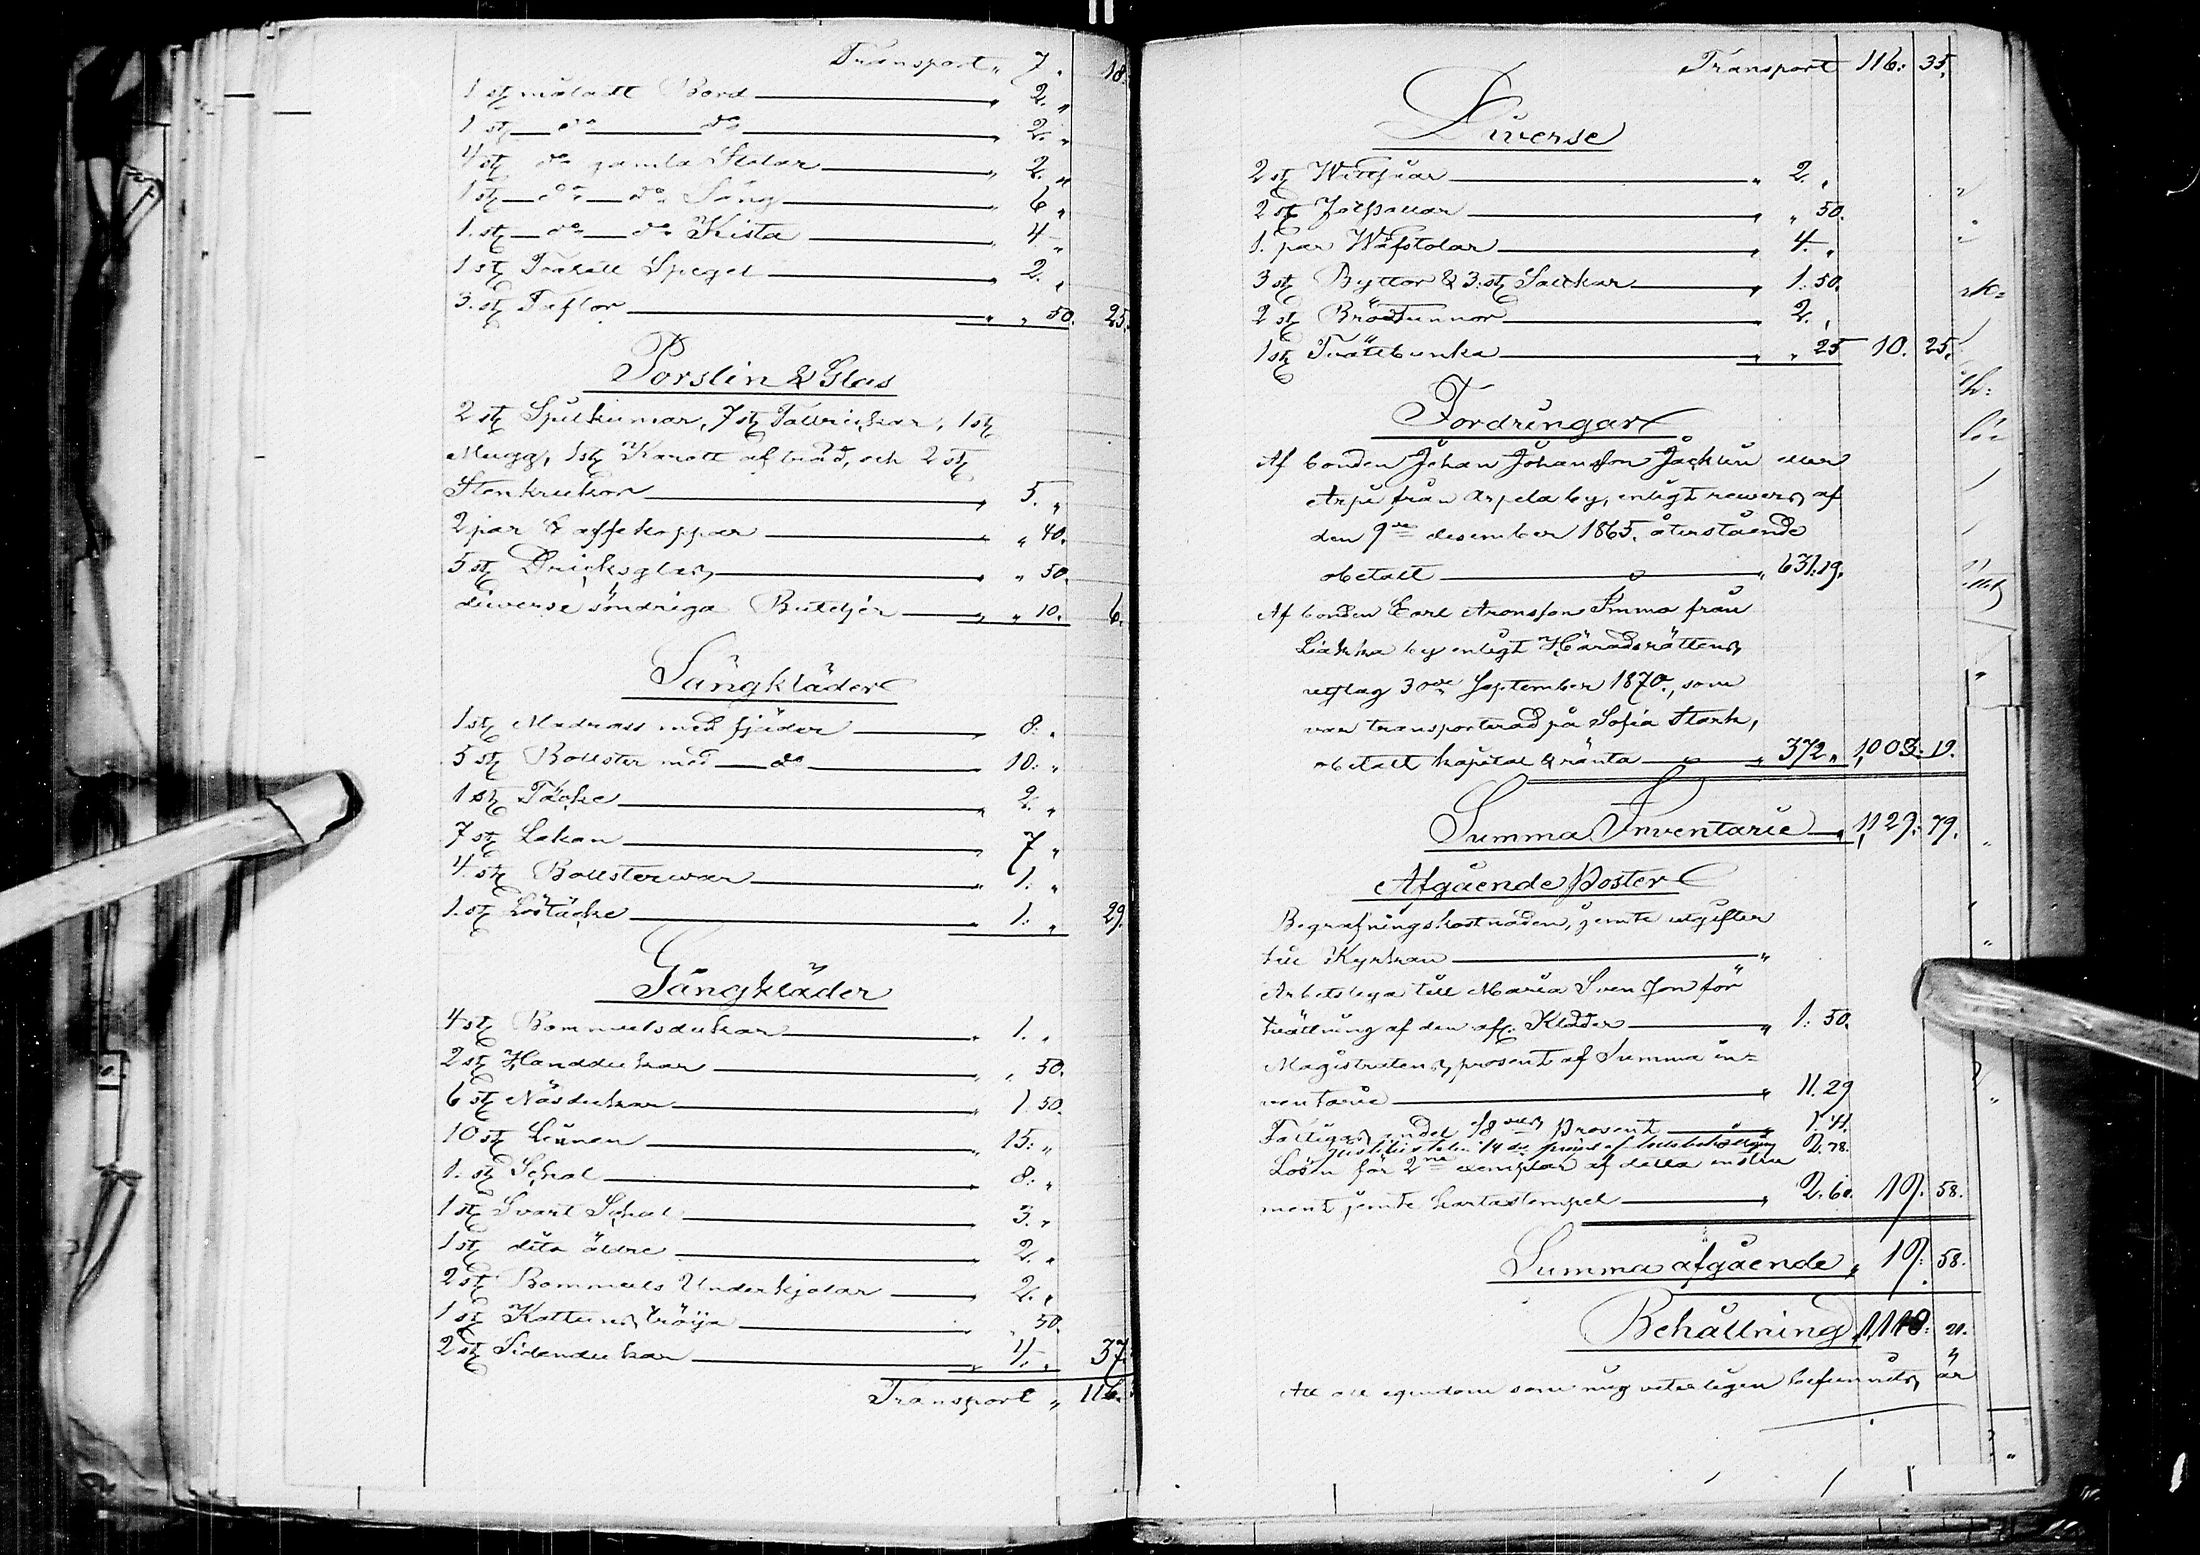 Transport „ 7 „ 18.
1 st måladt Bord „ 2. „
1 st do do „ 2. „
4 st do gamla Stolar „ 2. „
1 st do do Säng „ 6 „
1. st do do Kista „ 4 „
1 st Toalett Spegel „ 2. „
3. st Taflor „ „ 50. 25.
Porslin & Glas
2 st Spilkumar, 7 st Tallrickar, 1 st
Mugg, 1 st Karott af träd, och 2 st
Stenkrukor „ 5. „
2 par Caffekoppar „ „ 40.
5 st Dricksglas „ „ 50.
diverse söndriga Buteljer „ „ 10. 6.
Sängkläder
1 st Madrass med fjäder „ 8: „
5 st Bolster med do „ 10: „
1 st Täcke „ 2. „
7 st Lakan „ 7 „
4. st Bolsterwar „ 1. „
1. st Löstäcke „ 1: „ 29.
Gångkläder
4 st Bommulsdukar „ 1. „
2 st Handdukar „ „ 50.
6 st Näsdukar „ 1. 50.
10 st Linnen „ 15: „
1. st Schal „ 8: „
1 st Svart Schal „ 3. „
1 st dito äldre „ 2. „
2 st Bommuls Underkjolar „ 2. „
1 st Kattuns tröija „ 50.
2 st Sidendukar „ 4. „ 37.
Transport „ 116.
Transport 116: 35.
Diverse
2 st „ 2. „
2 st „ „ 50.
1. par Wäfstolar „ 4. „
3 st Byttor & 3. st Saltkar „ 1. 50.
2 st Brödtunnor „ 2. „
1 st Tvättbunka „ „ 25 10. 25.
Fordringar
Af bonden Johan Johansson Jackun eller
Arpi från Arpela by, enligt revers af
den 9de desember 1865. återstående
obetalt „ 631.19.
Af bonden Carl Aronsson Imma från
Liakka by enligt Häradsrättens
utslag 30de September 1870., som
var transporterad på Sofia Stark,
obetalt kapital & ränta „ 372 „ 1,003. 19.
Summa Inventarie „ 1,129. 79.
Afgående Poster
Begrafningskostnaden, jemte utgifter
till Kyrkan „
Arbetslega till Maria Svensson för
tvättning af den afl. Kläder „ 1: 50.
Magistratens prosent af Summa in=
ventarie „ 11. 29
Fattigas andel 1/8 prosent „ 1. 41.
1/4 af 2. 78.
Lösen för 2ne exemplar af detta instru
ment jemte kartastempel „ 2. 60. 19. 58.
Summa afgående „ 19. 58.
Behållning „ 1,110. 21.
Att all egendom som mig veterligen befunnits är